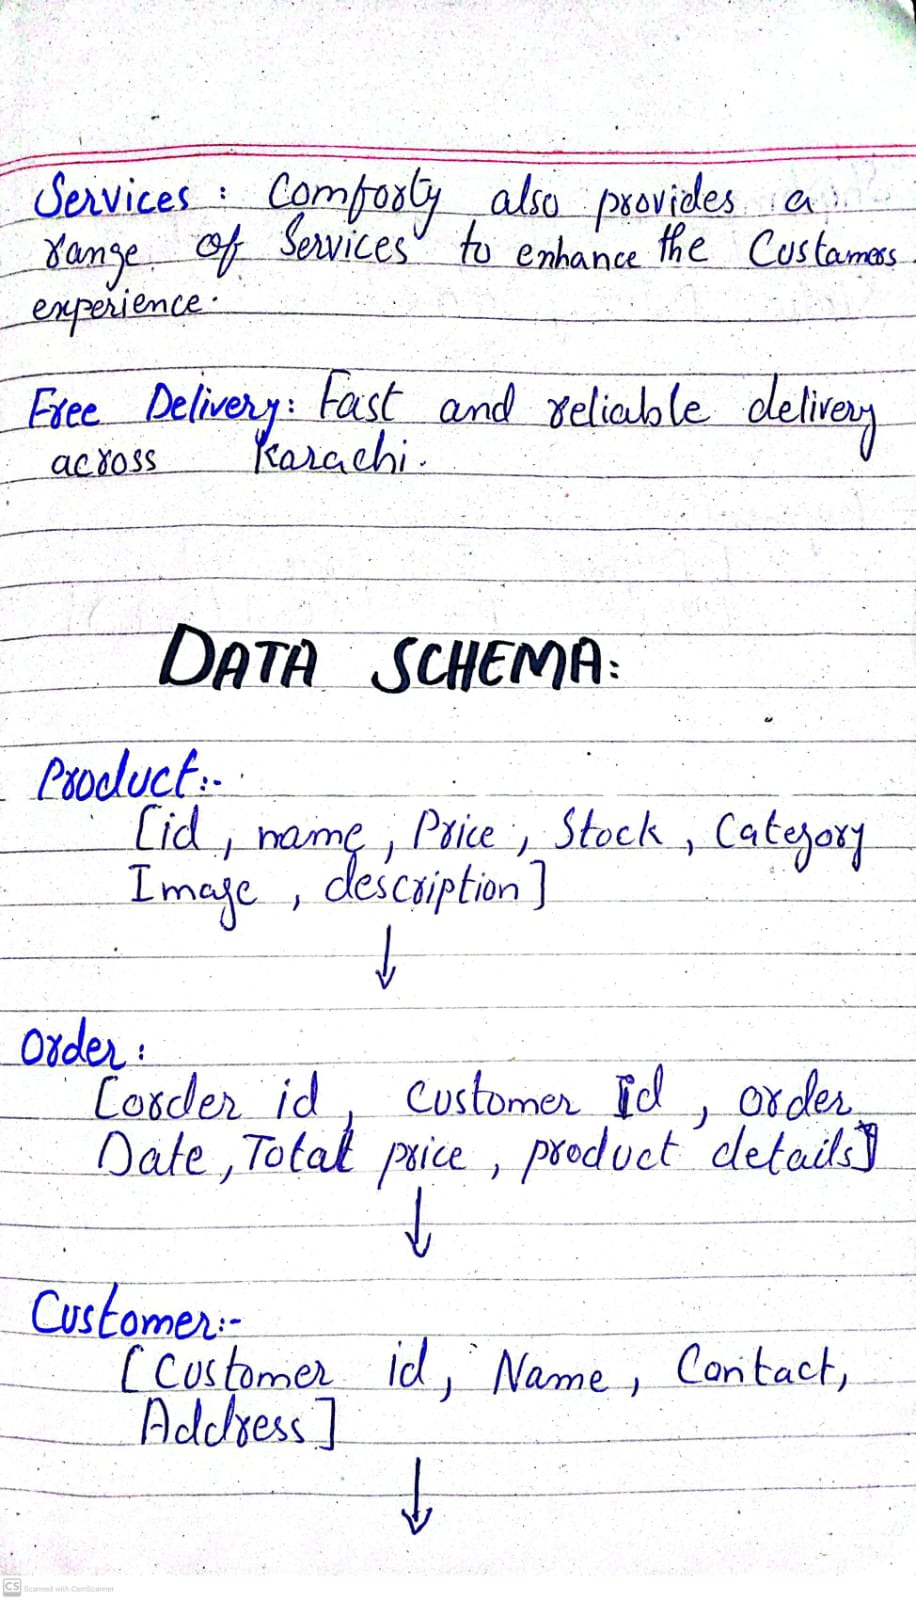 Services : Comforty also provides a
range of Services to enhance the Customers
experience.
Free Delivery: Fast and reliable delivery
across Karachi.
DATA SCHEMA:
Product:-
[id, name, Price, Stock, Category
Image, description]
↓
Order:
[order id, Customer Id, order
Date, Total price, product details]
↓
Customer:-
[Customer id, Name, Contact,
Address]
↓
CS Scanned with CamScanner